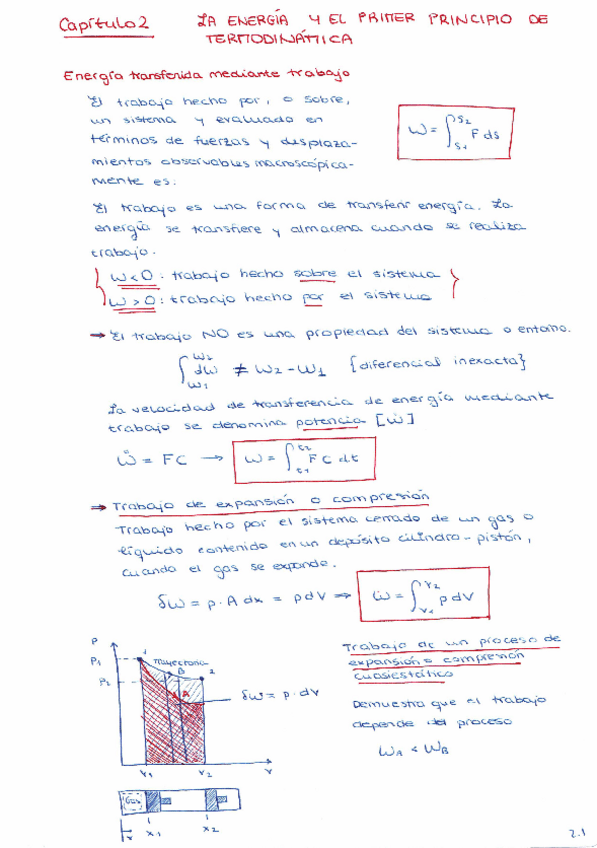 Capítulo 2 LA ENERGÍA Y EL PRIMER PRINCIPIO DE
TERMODINÁMICA
Energía transferida mediante trabajo
El trabajo hecho por, o sobre,
un sistema y evaluado en
términos de fuerzas y desplaza-
mientos observables macroscópica-
mente es:
W = ∫_{S1}^{S2} F ds
El trabajo es una forma de transferir energía. La
energía se transfiere y almacena cuando se realiza
trabajo.
W < 0 : trabajo hecho sobre el sistema
W > 0 : trabajo hecho por el sistema
→ El trabajo NO es una propiedad del sistema o entorno.
∫_{W1}^{W2} dW ≠ W2 - W1 {diferencial inexacta}
La velocidad de transferencia de energía mediante
trabajo se denomina potencia [Ẇ]
Ẇ = FC → W = ∫_{t1}^{t2} F C dt
→ Trabajo de expansión o compresión
Trabajo hecho por el sistema cerrado de un gas o
líquido contenido en un depósito cilindro-pistón,
cuando el gas se expande.
δW = p · A dx = pdV ⇒ W = ∫_{V1}^{V2} pdV
Trabajo de un proceso de
expansión o compresión
cuasiestático
Demuestra que el trabajo
depende del proceso
WA < WB
P
P1
P2
1
Trayectoria
B
A
2
δW = p · dV
V1 V2 V
Gas
x x1 x2
2.1